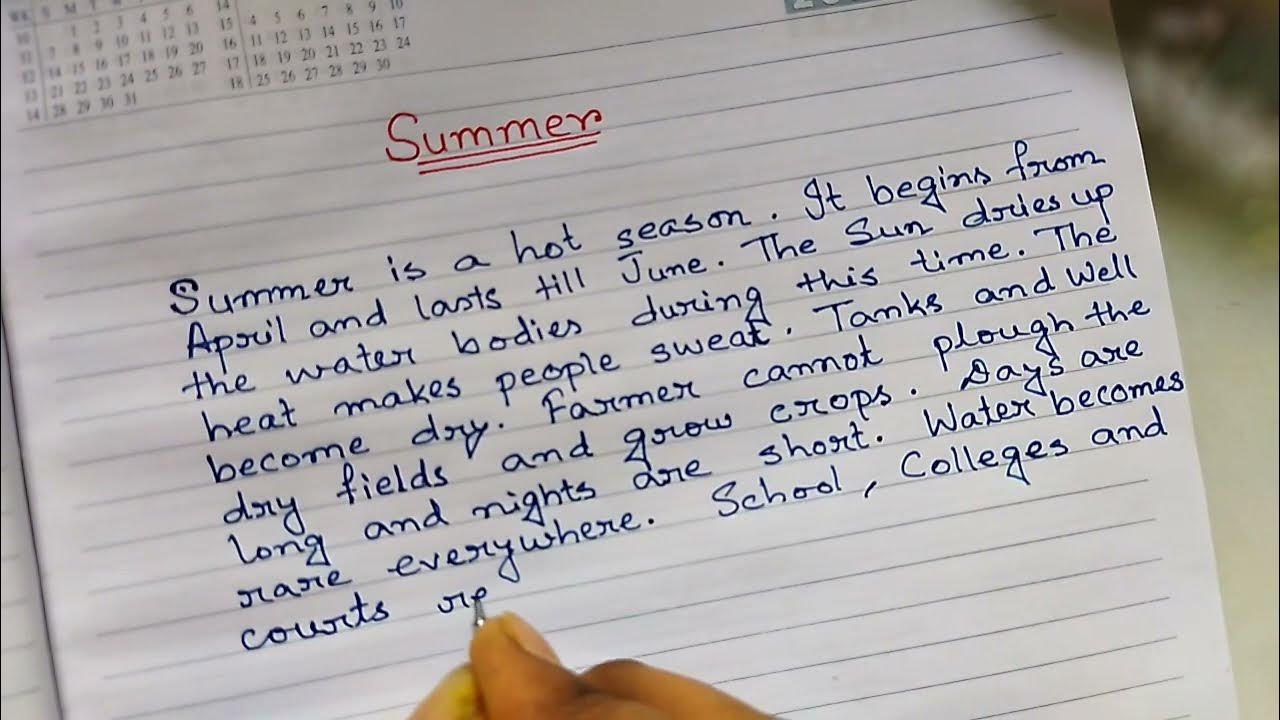 14
1 2 3 4 5 6
7 8 9 10 11 12 13
14 15 16 17 18 19 20
21 22 23 24 25 26 27
14 28 29 30 31
15 4 5 6 7 8 9 10
16 11 12 13 14 15 16 17
17 18 19 20 21 22 23 24
18 25 26 27 28 29 30
Summer
Summer is a hot season. It begins from
April and lasts till June. The Sun dries up
the water bodies during this time. The
heat makes people sweat. Tanks and Well
become dry. Farmer cannot plough the
dry fields and grow crops. Days are
long and nights are short. Water becomes
rare everywhere. School, Colleges and
courts re